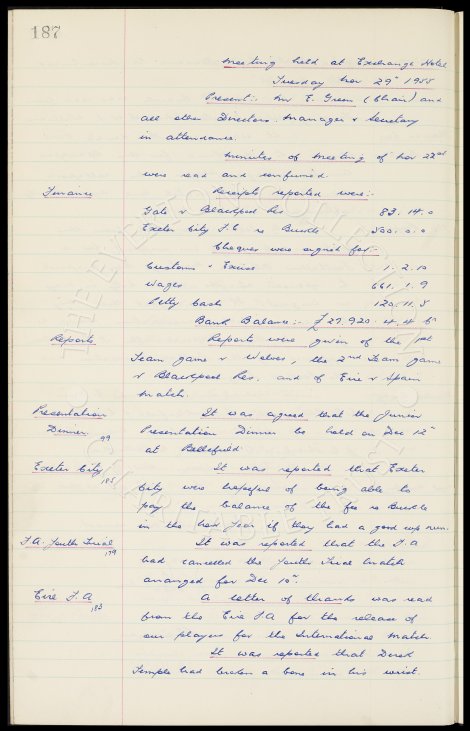 187
Meeting held at Exchange Hotel
Tuesday Nov 29th 1955
Present:- Mr E. Green (Chair) and
all other Directors. Manager & Secretary
in attendance.
Minutes of Meeting of Nov 22nd
were read and confirmed.
Finance
Receipts reported were:-
Gate v Blackpool Res 83. 14. 0
Exeter City F.C re Buckle 500. 0. 0
Cheques were signed for:-
Customs & Excise 1. 2. 10
Wages 661. 1. 9
Petty Cash 120. 11. 8
Bank Balance:- £27,920. 4. 4
Reports
Reports were given of the 1st
Team game v Wolves, the 2nd Team game
v Blackpool Res. and of Eire v Spain
match.
Presentation
Dinner 99
It was agreed that the Junior
Presentation Dinner be held on Dec 12th
at Bellefield.
Exeter City 185
It was reported that Exeter
City were hopeful of being able to
pay the balance of the fee re Buckle
in the New Year if they had a good cup run.
F.A. Youth Trial 179
It was reported that the F.A
had cancelled the Youth Trial match
arranged for Dec 10th.
Eire F.A 183
A letter of thanks was read
from the Eire F.A for the release of
our players for the International Match.
It was reported that Derek
Temple had broken a bone in his wrist.
THE EVERTON COLLECTION
CHARITABLE TRUST